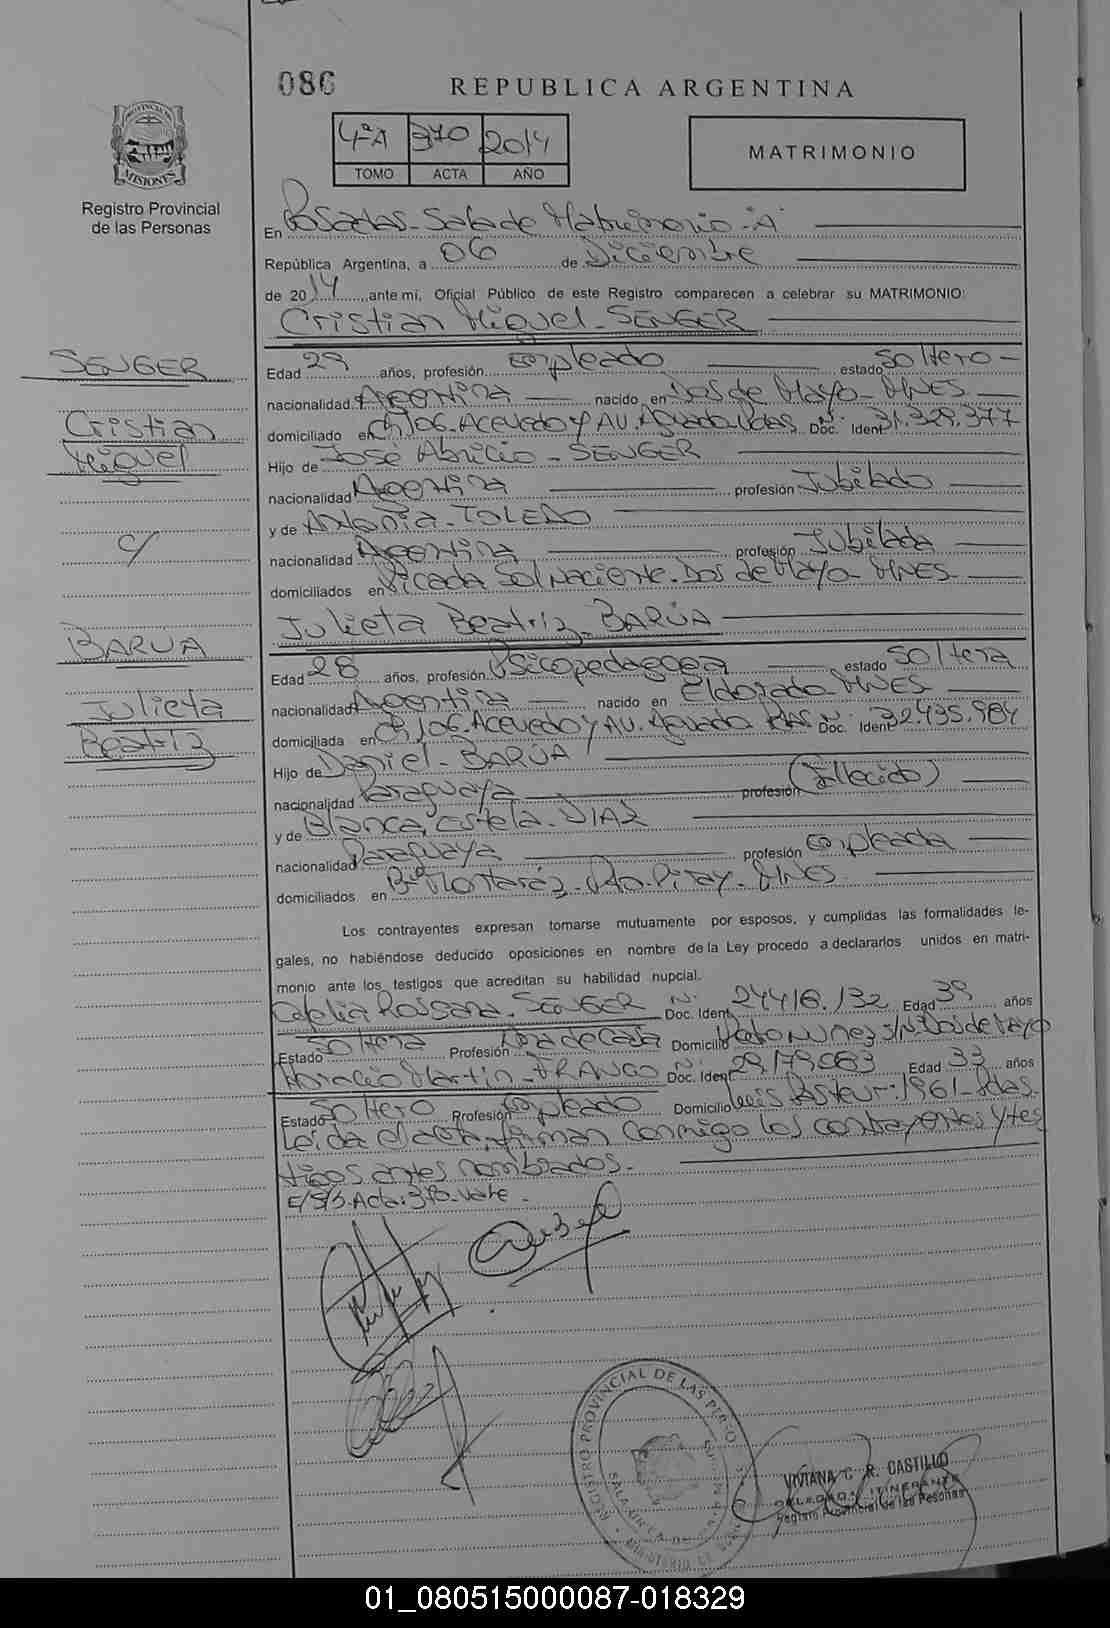 086
REPUBLICA ARGENTINA
PROVINCIA
MISIONES
Registro Provincial
de las Personas
4ºA 370 2014
TOMO ACTA AÑO
MATRIMONIO
En Posadas - Sala de Matrimonio - "A"
República Argentina, a 06 de Diciembre
de 2014 ante mi, Oficial Público de este Registro comparecen a celebrar su MATRIMONIO:
Cristian Miguel - SENGER
SENGER
Cristian
Miguel
c/
BARUA
Julieta
Beatriz
Edad 29 años, profesión empleado estado soltero -
nacionalidad Argentina nacido en Dos de Mayo - MNES -
domiciliado en Ch 106. Acevedo y AV. Aguado. Pdas Nº Doc. Ident 31.329.377
Hijo de José Abricio - SENGER
nacionalidad Argentina profesión Jubilado
y de Antonia - TOLEDO
nacionalidad Argentina profesión Jubilada
domiciliados en Picada Sol Naciente. Dos de Mayo - MNES -
Julieta Beatriz - BARÚA
Edad 28 años, profesión Psicopedagoga estado soltera
nacionalidad Argentina nacido en Eldorado - MNES -
domiciliada en Ch 106. Acevedo y AV. Aguado Pdas Nº Doc. Ident 32.435.984
Hijo de Daniel - BARÚA
nacionalidad Paraguaya profesión (fallecido)
y de Blanca Estela - DIAZ
nacionalidad Paraguaya profesión empleada
domiciliados en Bº - Pto. Piray - MNES.
Los contrayentes expresan tomarse mutuamente por esposos, y cumplidas las formalidades le-
gales, no habiéndose deducido oposiciones en nombre de la Ley procedo a declararlos unidos en matri-
monio ante los testigos que acreditan su habilidad nupcial.
Rossana - SENGER Nº Doc. Ident 24.416.132 Edad 39 años
Estado soltera Profesión Ama de casa Domicilio Nunez s/n Dos de Mayo
Horacio Martin - FRANCO Nº Doc. Ident 29.179.083 Edad 33 años
Estado soltero Profesión empleado Domicilio Luis Pasteur: 1961 - Pdas.
Leida el acta firman conmigo los contrayentes y tes
tigos antes nombrados.
E/S/S. Acta: 370 - Vale -
REGISTRO PROVINCIAL DE LAS PERSO
VIVIANA C. R. CASTILLO
DELEGADA ITINERANTE
Registro Provincial de las Personas
01_080515000087-018329